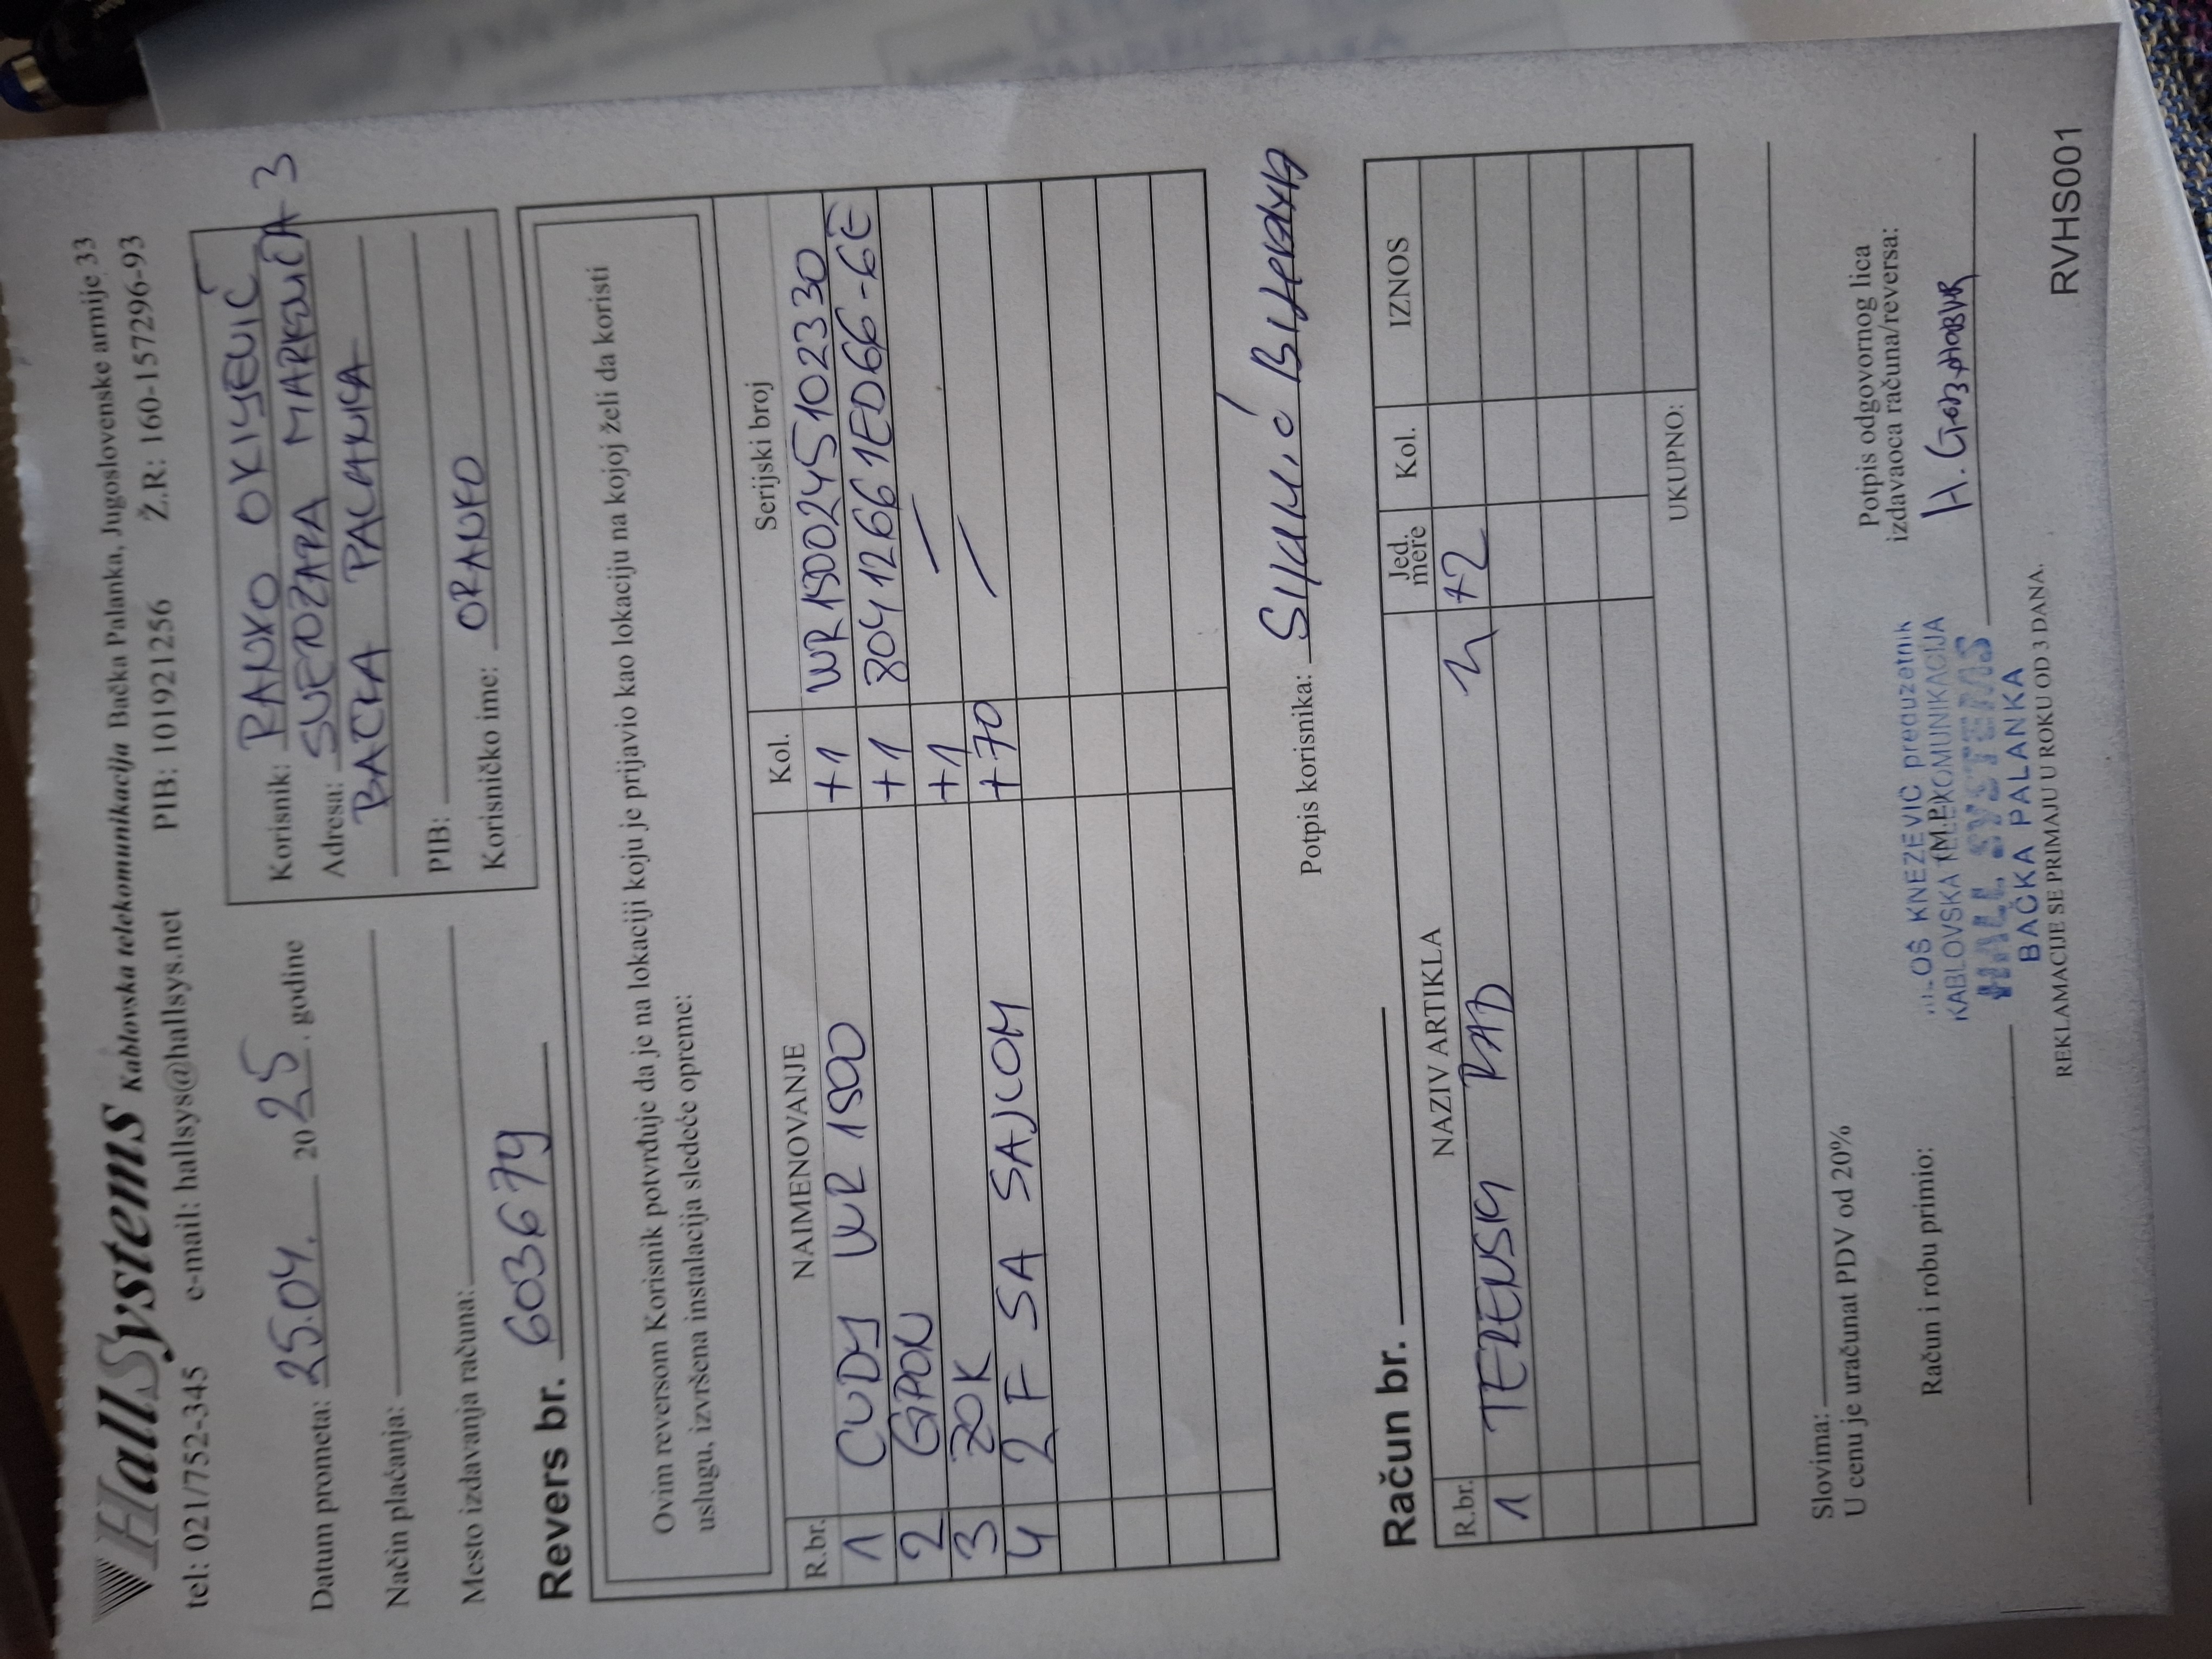 HallSystems Kablovska telekomunikacija Bačka Palanka, Jugoslovenske armije 33
tel: 021/752-345 e-mail: hallsys@hallsys.net PIB: 101921256 Ž.R: 160-157296-93
Datum prometa: 25.04. 2025. godine
Način plaćanja:
Mesto izdavanja računa:
Korisnik: RANKO OKIJEVIĆ
Adresa: SVETOZARA MARKOVIĆA 3
BAČKA PALANKA
PIB:
Korisničko ime: ORANKO
Revers br. 603679
Ovim reversom Korisnik potvrđuje da je na lokaciji koju je prijavio kao lokaciju na kojoj želi da koristi
uslugu, izvršena instalacija sledeće opreme:
R.br. NAIMENOVANJE Kol. Serijski broj
1 CUDY WR 1500 +1 WR1500245102330
2 GPON +1 8041266 1ED66-6E
3 ZOK +1 /
4 2 F SA SAJLOM +70 /
Potpis korisnika:
Račun br.
R.br. NAZIV ARTIKLA Jed. mere Kol. IZNOS
1 TERENSKI RAD h +2
UKUPNO:
Slovima:
U cenu je uračunat PDV od 20%
Račun i robu primio:
(M.P.)
Potpis odgovornog lica
izdavaoca računa/reversa:
KNEZEVIC preduzetnik
KABLOVSKA TELEKOMUNIKACIJA
HALL SYSTEMS
BAČKA PALANKA
REKLAMACIJE SE PRIMAJU U ROKU OD 3 DANA.
RVHS001